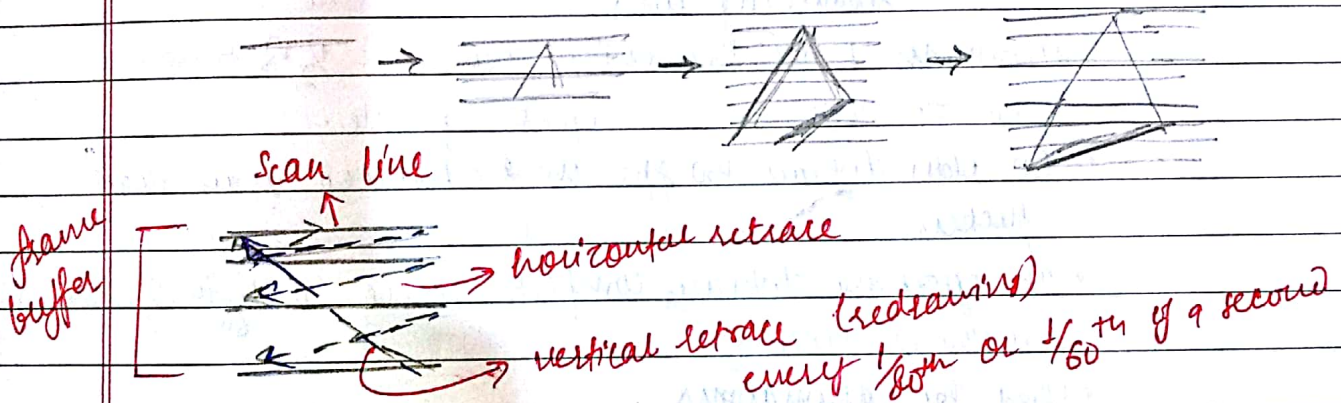 scan line
frame
buffer
horizontal retrace
vertical retrace (redrawing)
every 1/80th or 1/60th of a second